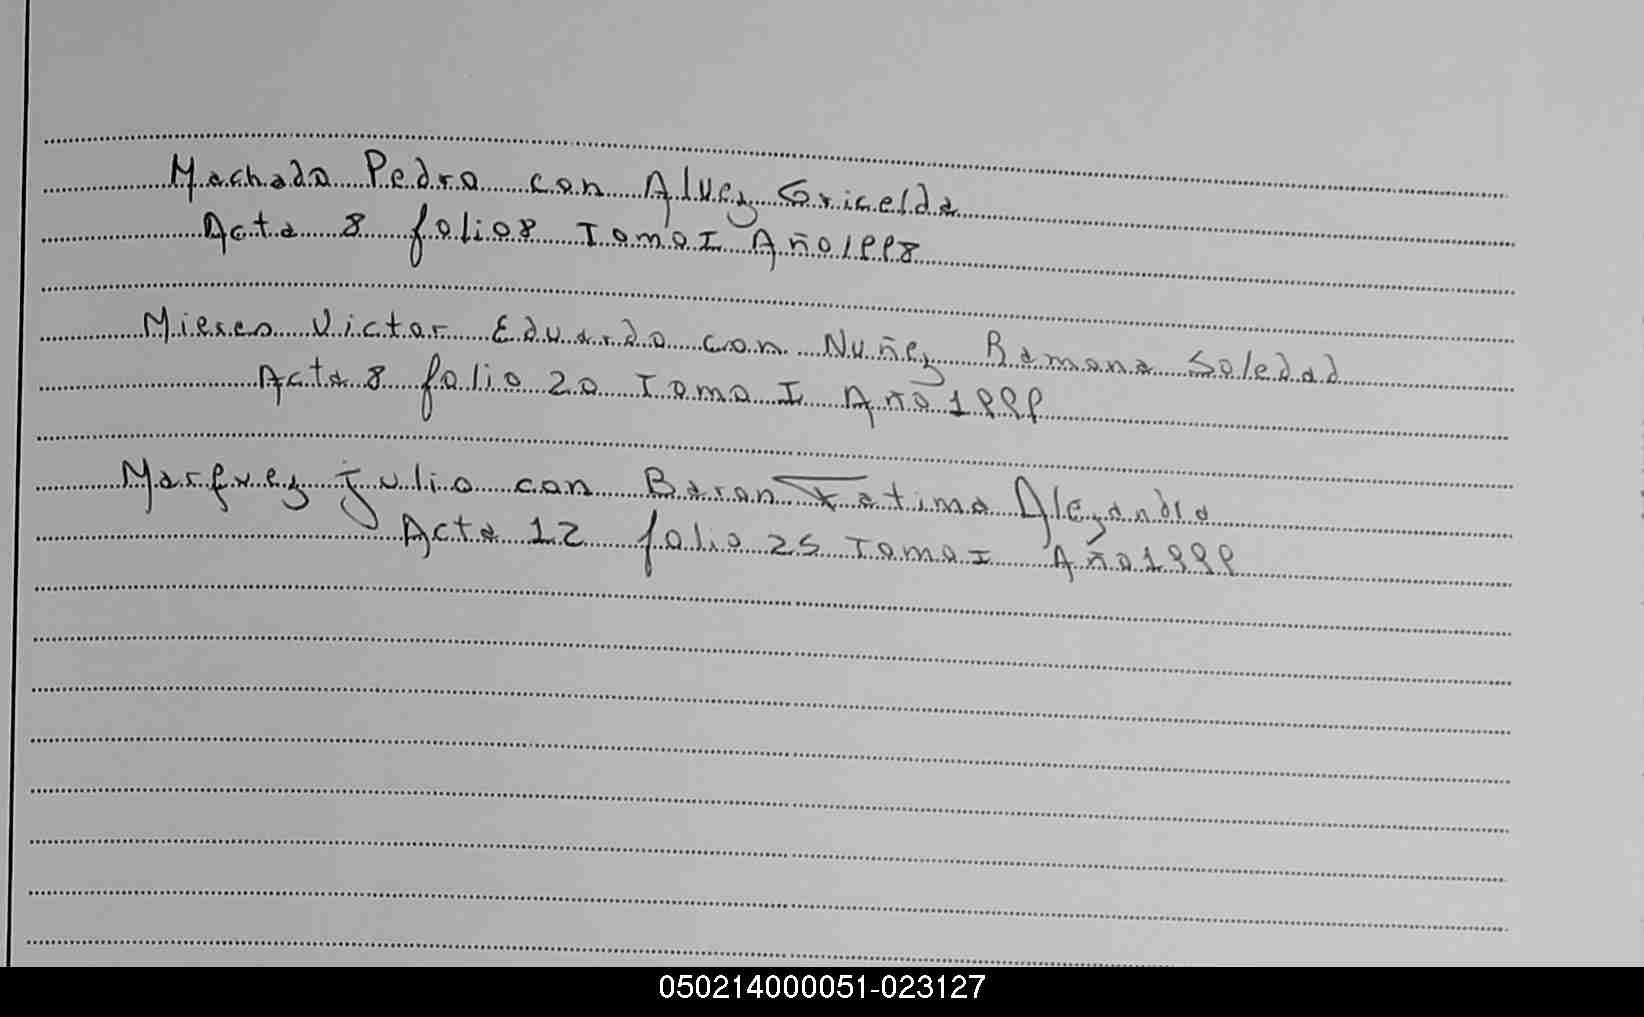 Machado Pedro con Alvez Gricelda
Acta 8 folio 8 Tomo I Año 1998
Mieres Victor Eduardo con Nuñez Ramona Soledad
Acta 8 folio 20 Tomo I Año 1999
Marfuez Julio con Baron Fatima Alezandra
Acta 12 folio 25 Tomo I Año 1999
050214000051-023127